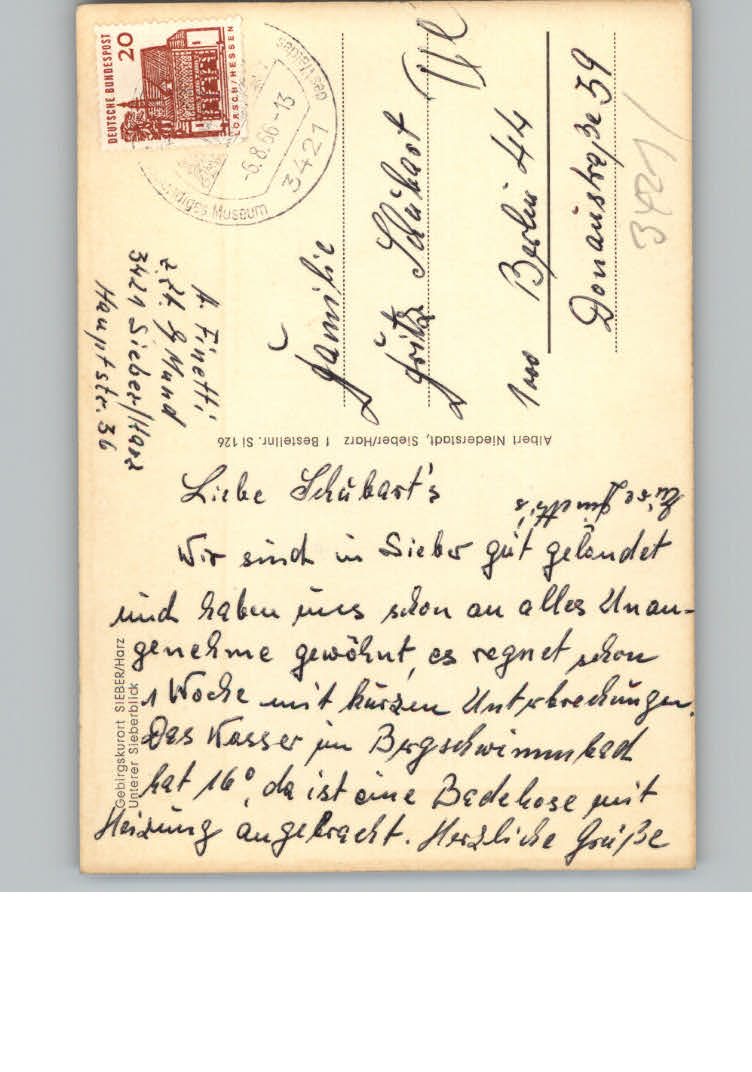 DEUTSCHE BUNDESPOST
20
LORSCH/HESSEN
Museum
-6.8.66-13
3421
A. Finetti
z. Zt. b/Mund
3421 Sieber/Harz
Hauptstr. 36
Familie
Fritz Schubart
1000 Berlin 44
Donaustraße 59
3421/
Albert Niederstadt, Sieber/Harz 1 Bestellnr. SI 126
Gebirgskurort SIEBER/Harz
Unterer Sieberblick
Liebe Schubart's
Wir sind in Sieber gut gelandet
und haben uns schon an alles Unan-
genehme gewöhnt, es regnet schon
1 Woche mit kurzen Unterbrechungen.
Das Wasser im Bergschwimmbad
hat 16°, da ist eine Badehose mit
Heizung angebracht. Herzliche Grüße